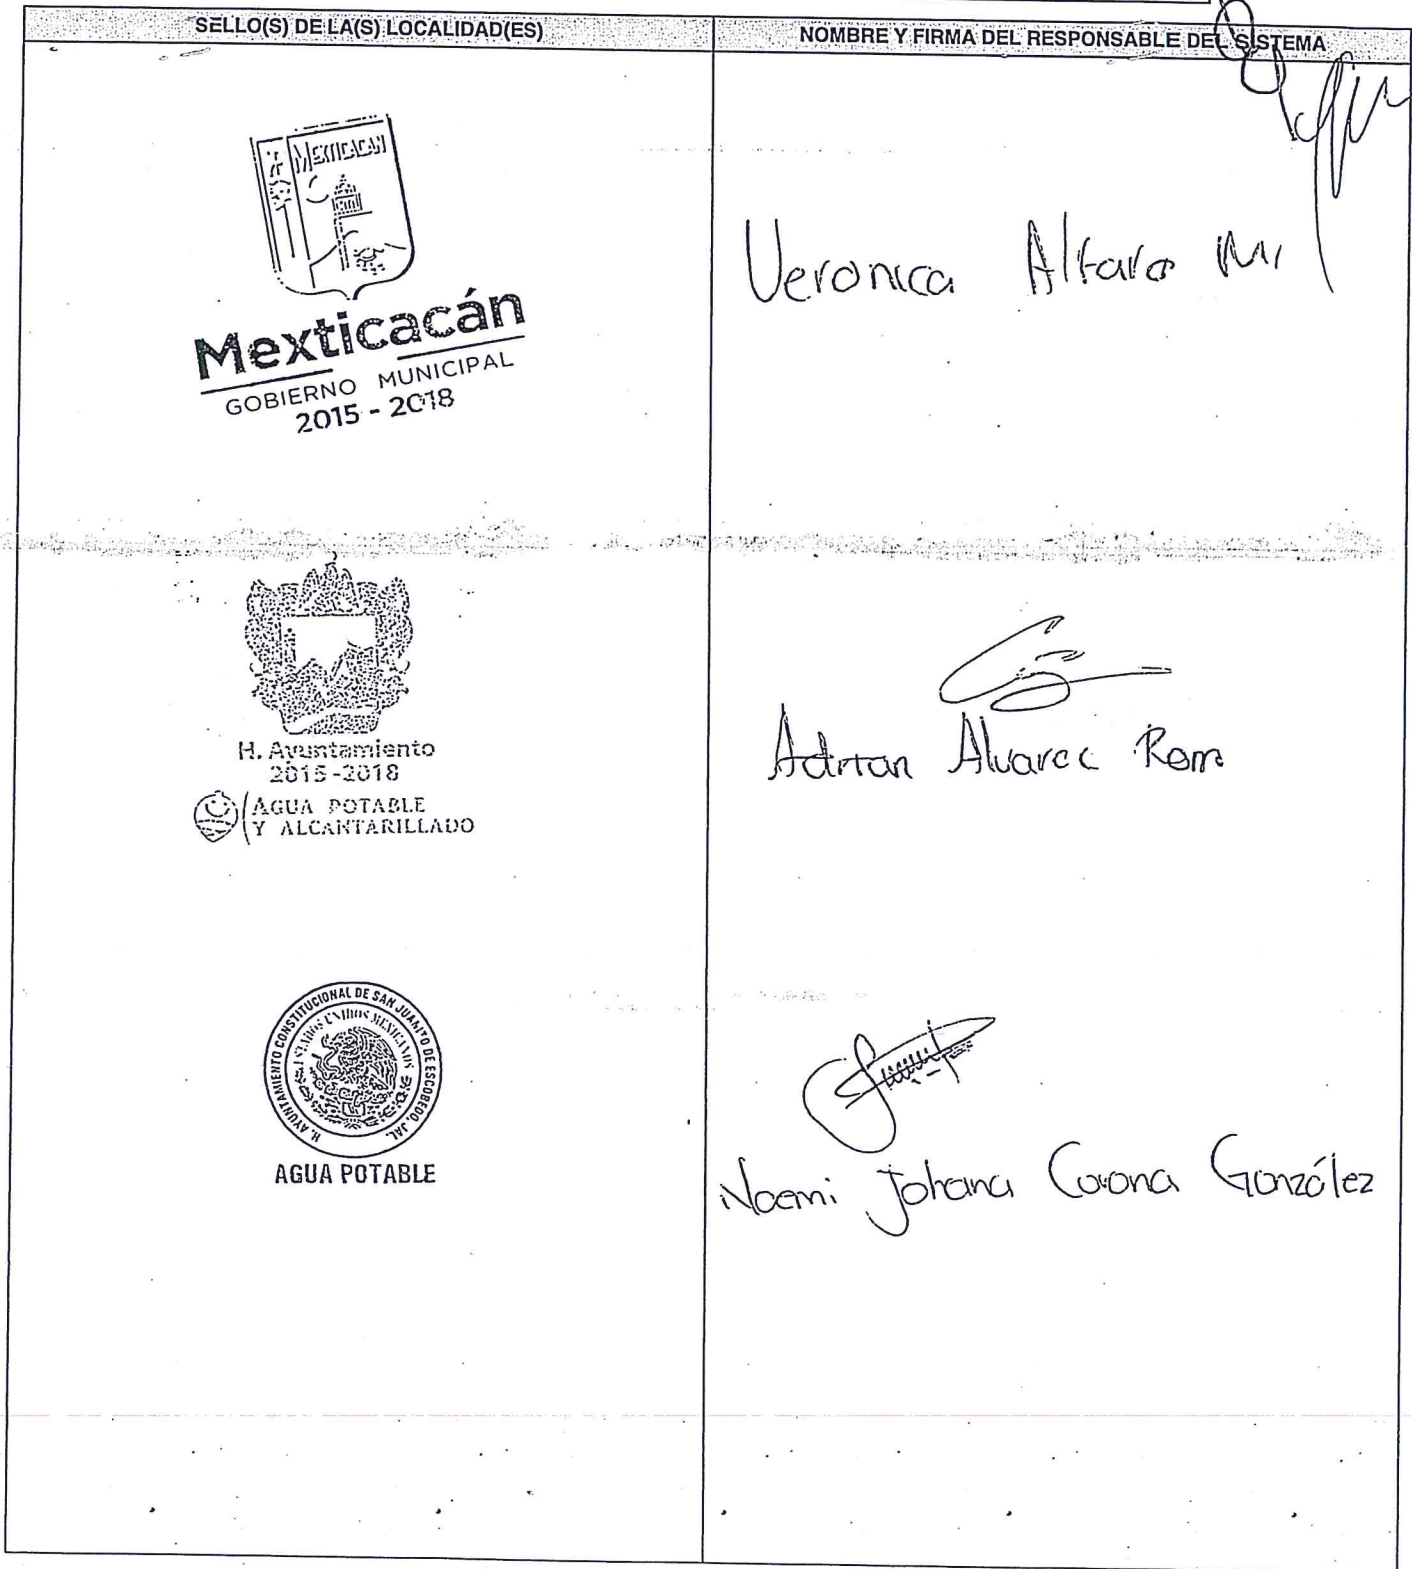 SELLO(S) DE LA(S) LOCALIDAD(ES)
NOMBRE Y FIRMA DEL RESPONSABLE DEL SISTEMA
MEXTICACAN
Mexticacán
GOBIERNO MUNICIPAL
2015 - 2018
Veronica Alfaro
H. Ayuntamiento
2015-2018
AGUA POTABLE
Y ALCANTARILLADO
Adrian Alvarez
H. AYUNTAMIENTO CONSTITUCIONAL DE SAN JUANITO DE ESCOBEDO, JAL.
ESTADOS UNIDOS MEXICANOS
AGUA POTABLE
Noemi Johana Corona González